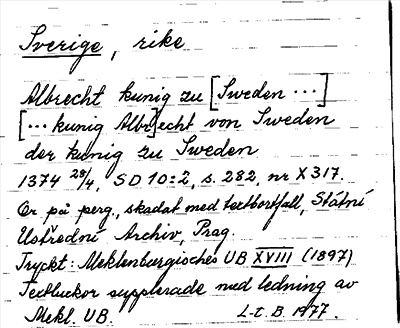 Sverige, rike
Albrecht kunig zu [Sweden ...]
[... kunig Albr]echt von Sweden
der kunig zu Sweden
1374 28/4, SD 10:2, s. 282, nr X317.
Or på perg., skadat med textbortfall, Státní
Ustřední Archiv, Prag.
Tryckt: Meklenburgisches UB XVIII (1897)
Textluckor supplerade med ledning av
Mekl. UB. L-t. B. 1977.